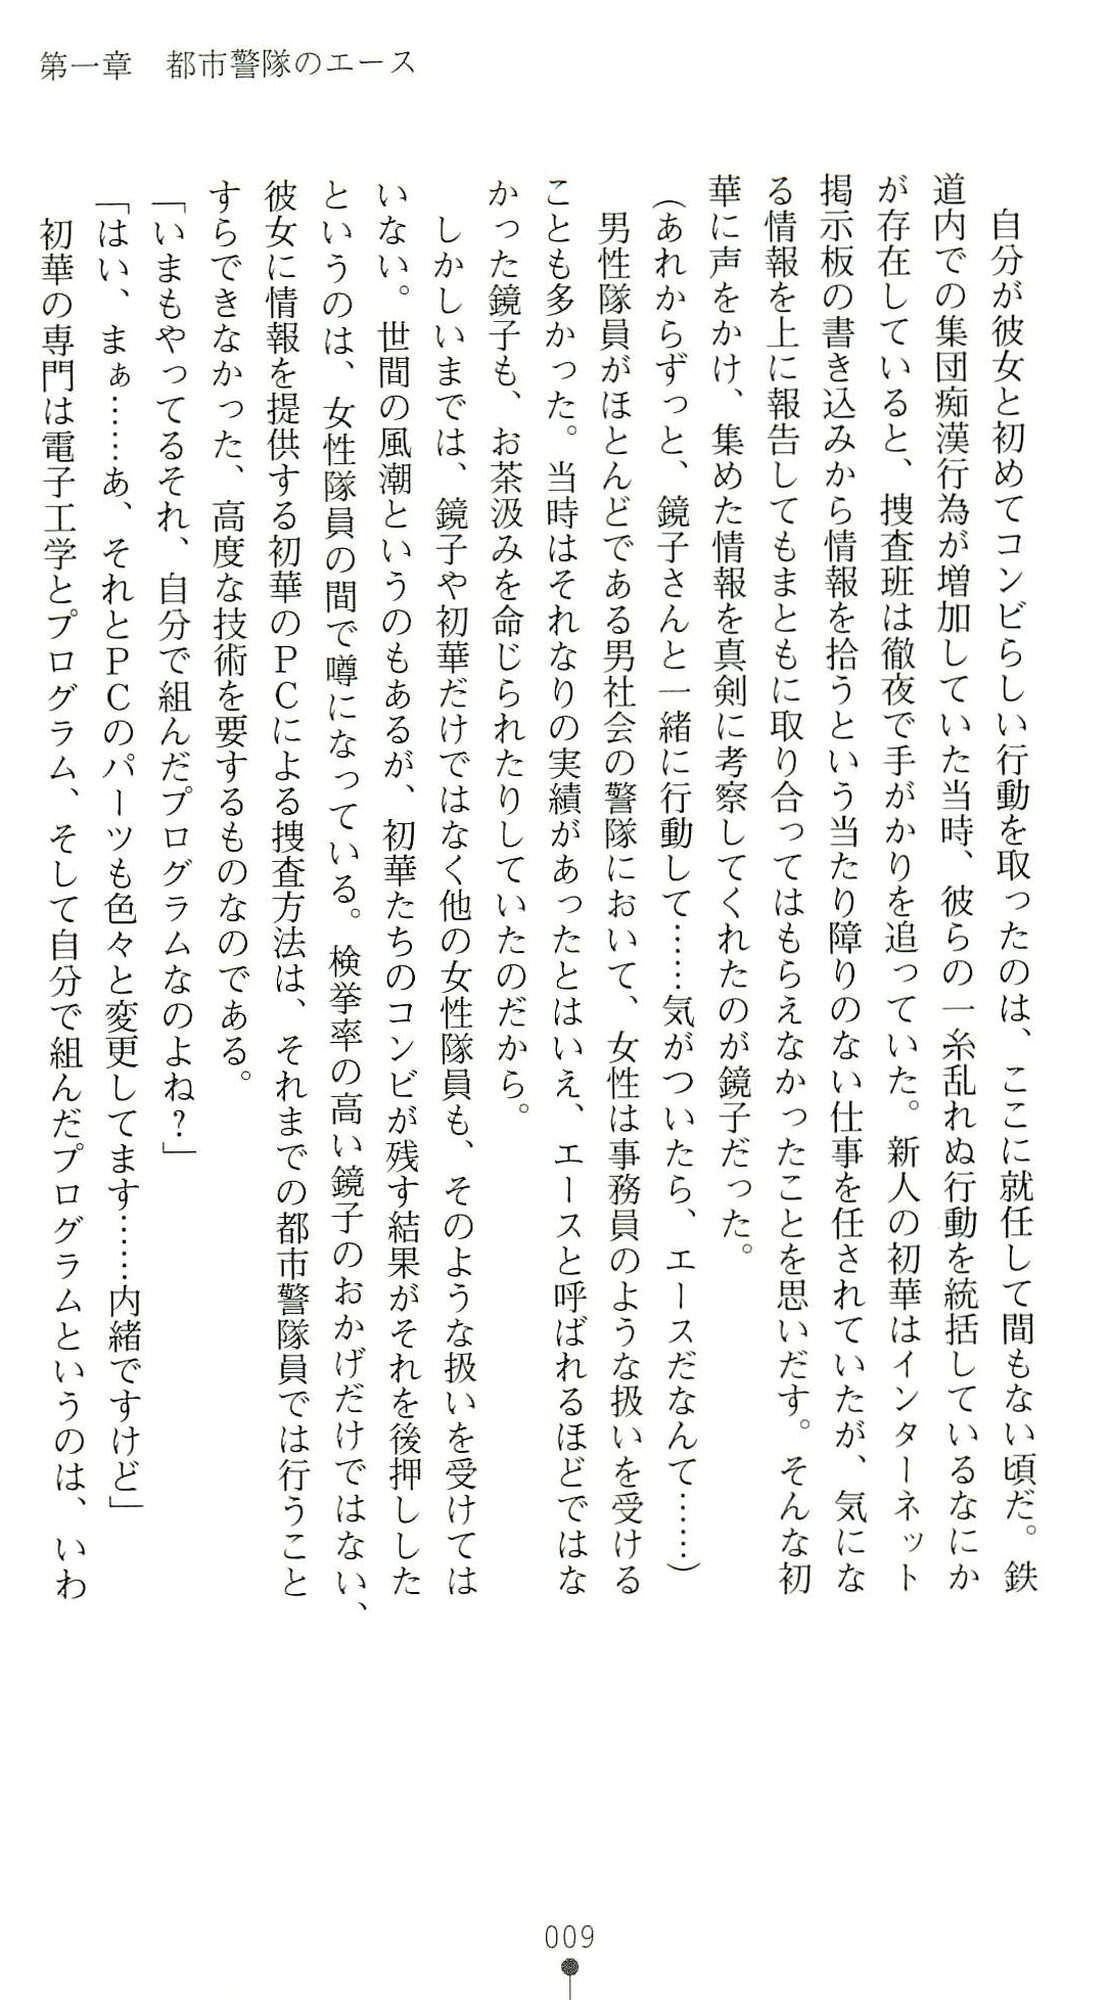 第一章　都市警隊のエース
　自分が彼女と初めてコンビらしい行動を取ったのは、ここに就任して間もない頃だ。鉄
道内での集団痴漢行為が増加していた当時、彼らの一糸乱れぬ行動を統括しているなにか
が存在していると、捜査班は徹夜で手がかりを追っていた。新人の初華はインターネット
掲示板の書き込みから情報を拾うという当たり障りのない仕事を任されていたが、気にな
る情報を上に報告してもまともに取り合ってはもらえなかったことを思いだす。そんな初
華に声をかけ、集めた情報を真剣に考察してくれたのが鏡子だった。
（あれからずっと、鏡子さんと一緒に行動して……気がついたら、エースだなんて……）
　男性隊員がほとんどである男社会の警隊において、女性は事務員のような扱いを受ける
ことも多かった。当時はそれなりの実績があったとはいえ、エースと呼ばれるほどではな
かった鏡子も、お茶汲みを命じられたりしていたのだから。
　しかしいまでは、鏡子や初華だけではなく他の女性隊員も、そのような扱いを受けては
いない。世間の風潮というのもあるが、初華たちのコンビが残す結果がそれを後押しした
というのは、女性隊員の間で噂になっている。検挙率の高い鏡子のおかげだけではない、
彼女に情報を提供する初華のＰＣによる捜査方法は、それまでの都市警隊員では行うこと
すらできなかった、高度な技術を要するものなのである。
「いまもやってるそれ、自分で組んだプログラムなのよね？」
「はい、まぁ……あ、それとＰＣのパーツも色々と変更してます……内緒ですけど」
　初華の専門は電子工学とプログラム、そして自分で組んだプログラムというのは、いわ
009